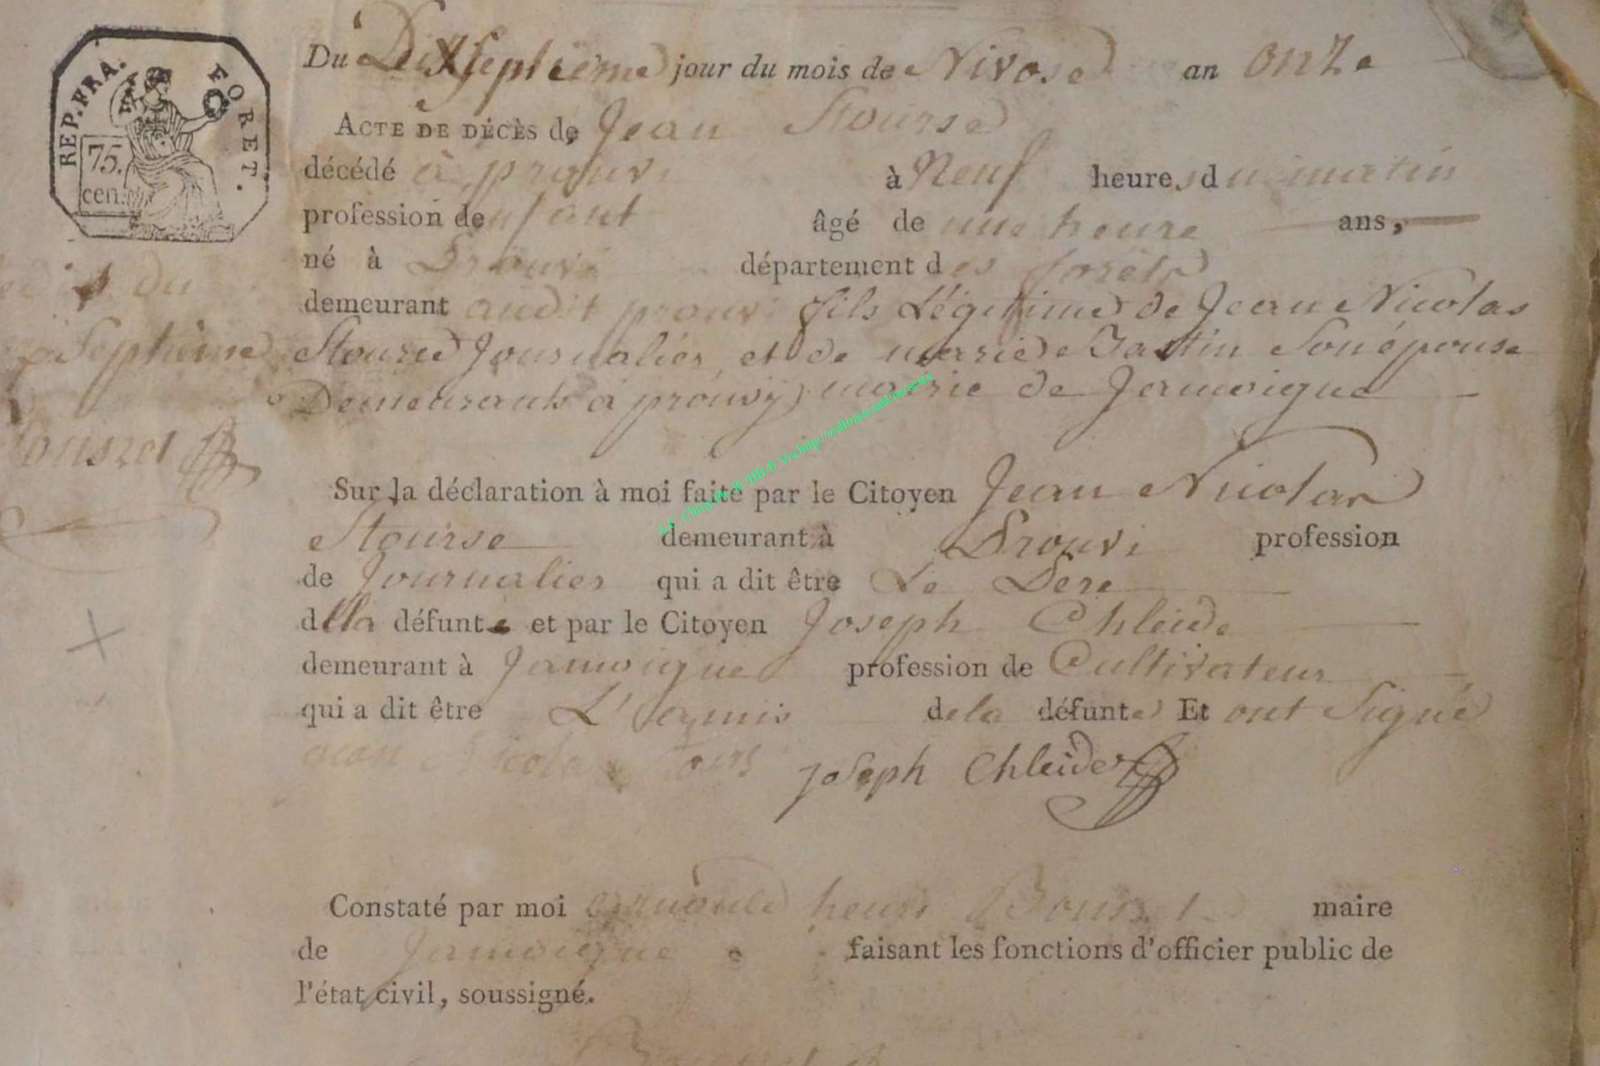 REP. FRA. FORET.
75.
cen.
Du Dixseptieme jour du mois de Nivose an onze
ACTE DE DÉCÈS de Jean Stourse
décédé à prouvi à Neuf heures du matin
profession denfant âgé de une heure ans,
né à Prouvi département des forêts
demeurant audit prouvi fils Légitime de Jean Nicolas
Stourse Journalier et de marie Bastin Son épouse
Demeurants à prouvy mairie de Jamoigne
du
Septième
Sur la déclaration à moi faite par le Citoyen Jean Nicolas
Stourse demeurant à Prouvi profession
de Journalier qui a dit être Le Pere
della défunte et par le Citoyen Joseph Chleide
demeurant à Jamoigne profession de Cultivateur
qui a dit être L'amis dela défunte Et ont Signé
Jean Nicola Tours Joseph Chleide
Constaté par moi henri maire
de Jamoigne faisant les fonctions d'officier public de
l'état civil, soussigné.